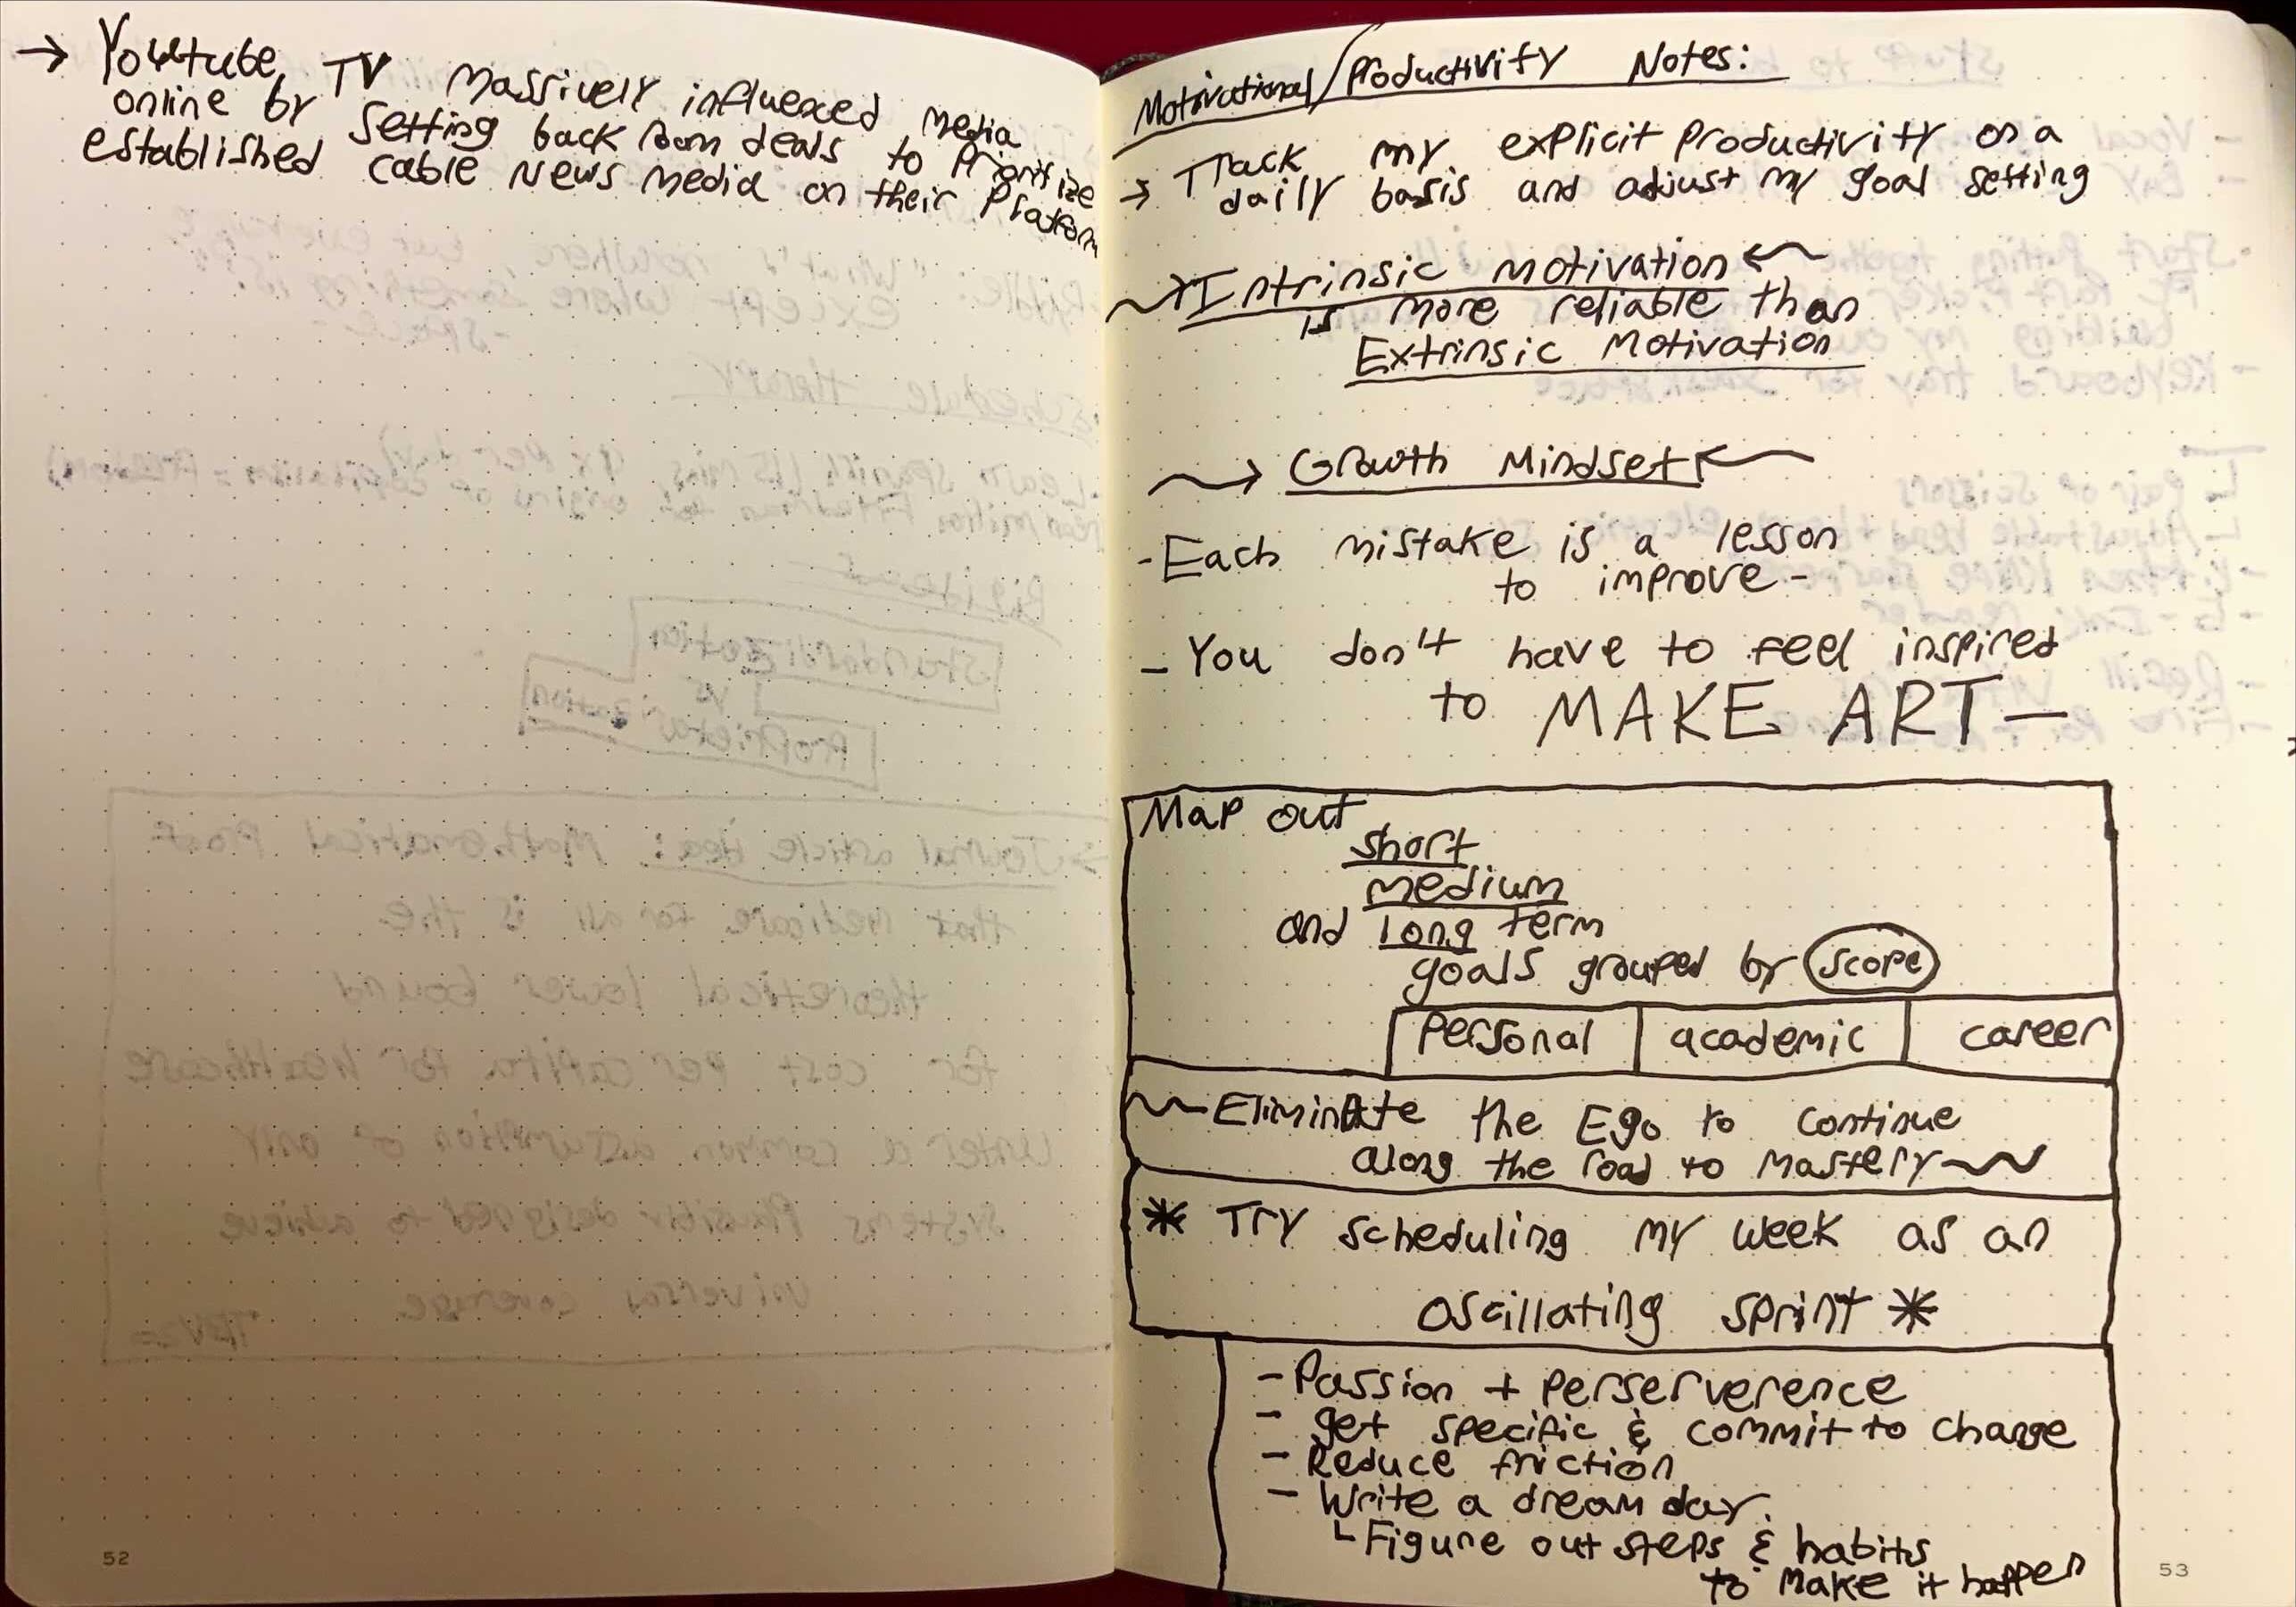 → Youtube TV massively influenced media
online by setting back room deals to prioritize
established cable news media on their platform
52
Motivational/Productivity Notes:
→ Track my explicit productivity on a
daily basis and adjust my goal setting
Intrinsic motivation
is more reliable than
Extrinsic Motivation
Growth Mindset
- Each mistake is a lesson
to improve -
- You don't have to feel inspired
to MAKE ART —
Map out
short
medium
and long term
goals grouped by scope
Personal academic career
Eliminate the Ego to continue
along the road to Mastery
* Try scheduling my week as an
oscillating sprint *
- Passion + perserverence
- get specific & commit to change
- Reduce friction
- Write a dream day.
└ Figure out steps & habits
to make it happen
53